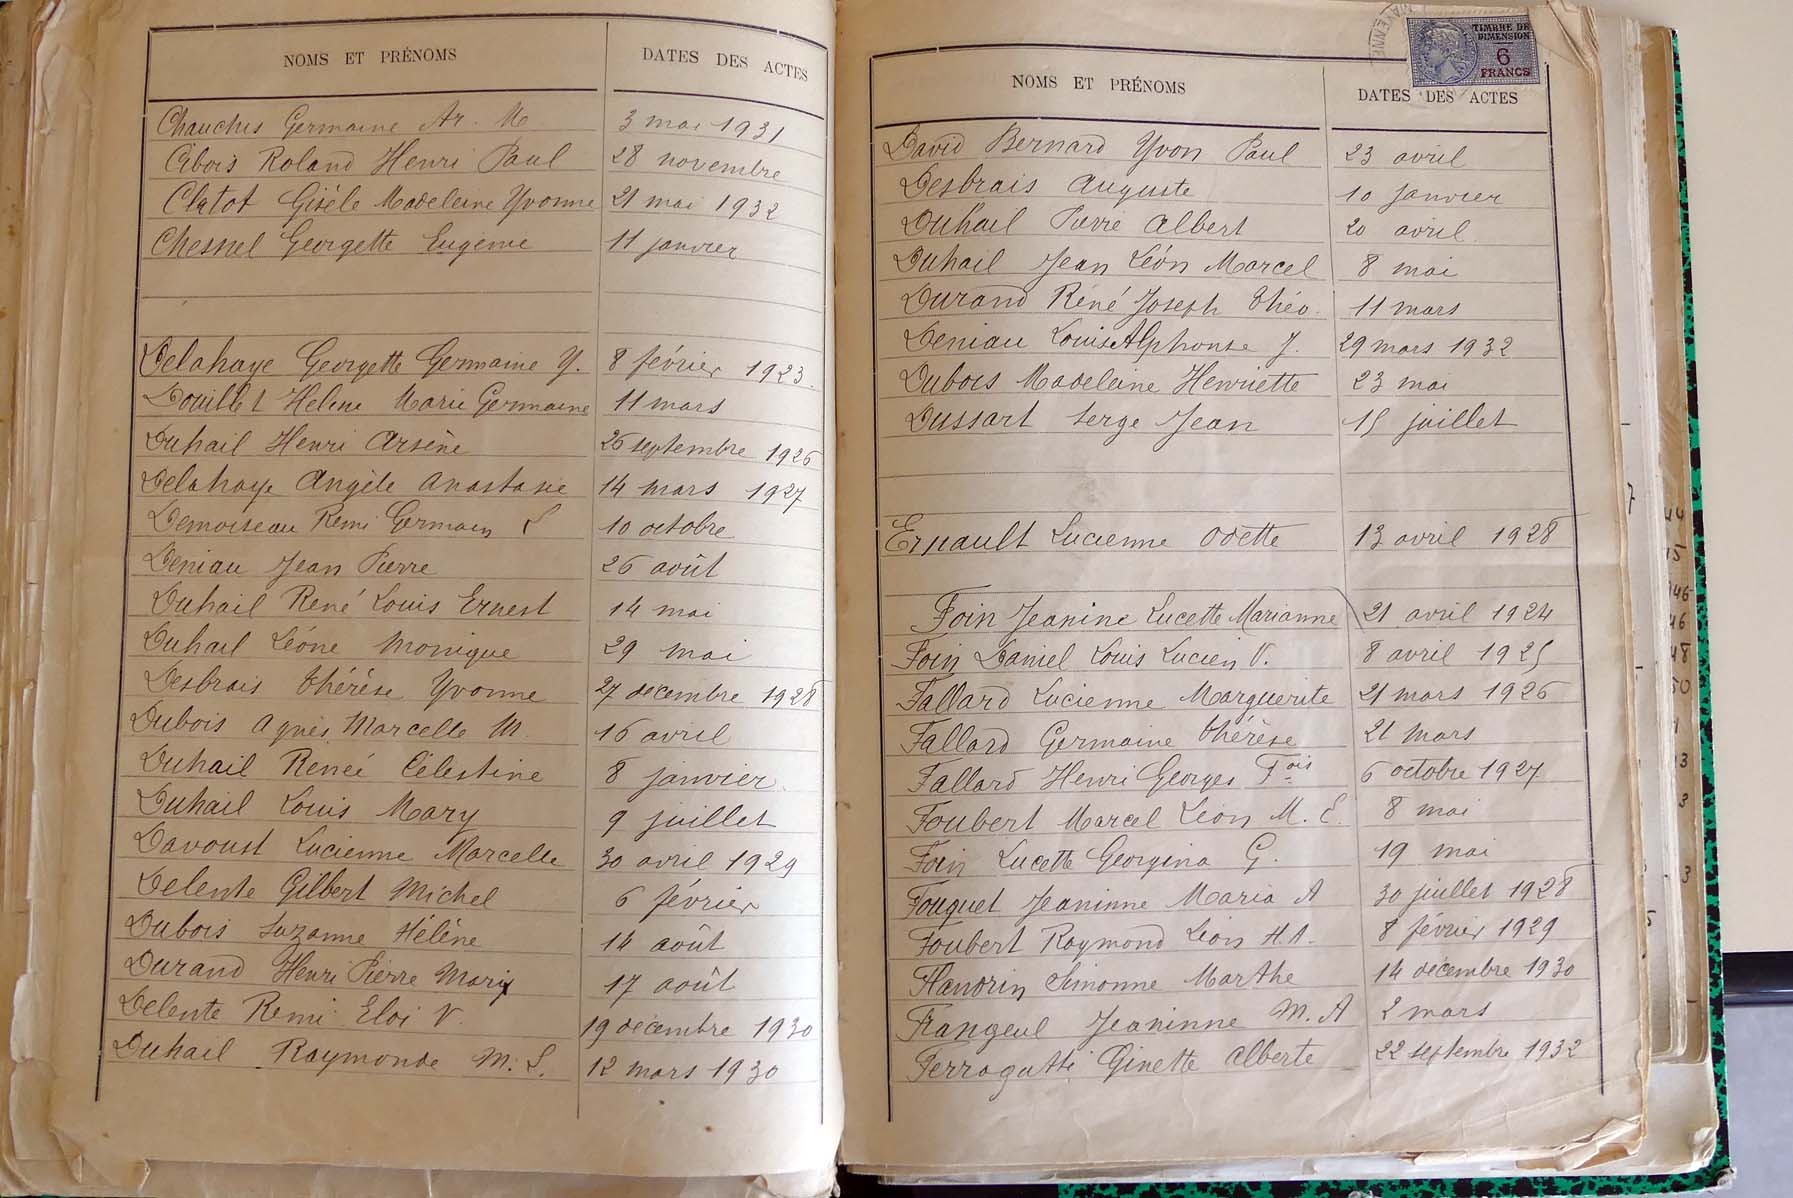 NOMS ET PRÉNOMS DATES DES ACTES
Chauchis Germaine Ar. M 3 mai 1931
Cibois Roland Henri Paul 28 novembre
Clatot Gisèle Madeleine Yvonne 21 mai 1932
Chesnel Georgette Eugénie 11 janvier
Delahaye Georgette Germaine Y. 8 février 1923.
Douillet Helene Marie Germaine 11 mars
Duhail Henri Arsène 26 septembre 1926
Delahaye Angèle Anastasie 14 mars 1927
Demoiseau Remi Germain L 10 octobre
Deniau Jean Pierre 26 août
Duhail René Louis Ernest 14 mai
Duhail Léone Monique 29 mai
Desbrais Thérèse Yvonne 27 décembre 1928
Dubois Agnès Marcelle M. 16 avril
Duhail Renée Célestine 8 janvier
Duhail Louis Mary 9 juillet
Davoust Lucienne Marcelle 30 avril 1929
Delente Gilbert Michel 6 février
Dubois Suzanne Hélène 14 août
Durand Henri Pierre Mary 17 août
Delente Remi Eloi V. 19 décembre 1930
Duhail Raymonde M. L. 12 mars 1930
TIMBRE DE
DIMENSION
6
FRANCS
NOMS ET PRÉNOMS DATES DES ACTES
David Bernard Yvon Paul 23 avril
Desbrais Auguste 10 janvier
Duhail Pierre Albert 20 avril
Duhail Jean Léon Marcel 8 mai
Durand René Joseph Théo. 11 mars
Deniau Louis Alphonse J. 29 mars 1932
Dubois Madeleine Henriette 23 mai
Dussart Serge Jean 15 juillet
Ernault Lucienne Odette 13 avril 1928
Foin Jeanine Lucette Marianne 21 avril 1924
Foin Daniel Louis Lucien V. 8 avril 1925
Fallard Lucienne Marguerite 21 mars 1926
Fallard Germaine Thérèse 21 mars
Fallard Henri Georges Fois 6 octobre 1927
Foubert Marcel Léon M. E. 8 mai
Foin Lucette Georgina G. 19 mai
Fouquet Jeaninne Maria A 30 juillet 1928
Foubert Raymond Léon H.A. 8 février 1929
Flandrin Simonne Marthe 14 décembre 1930
Frangeul Jeaninne M. A 2 mars
Ferragutti Ginette Alberte 22 septembre 1932